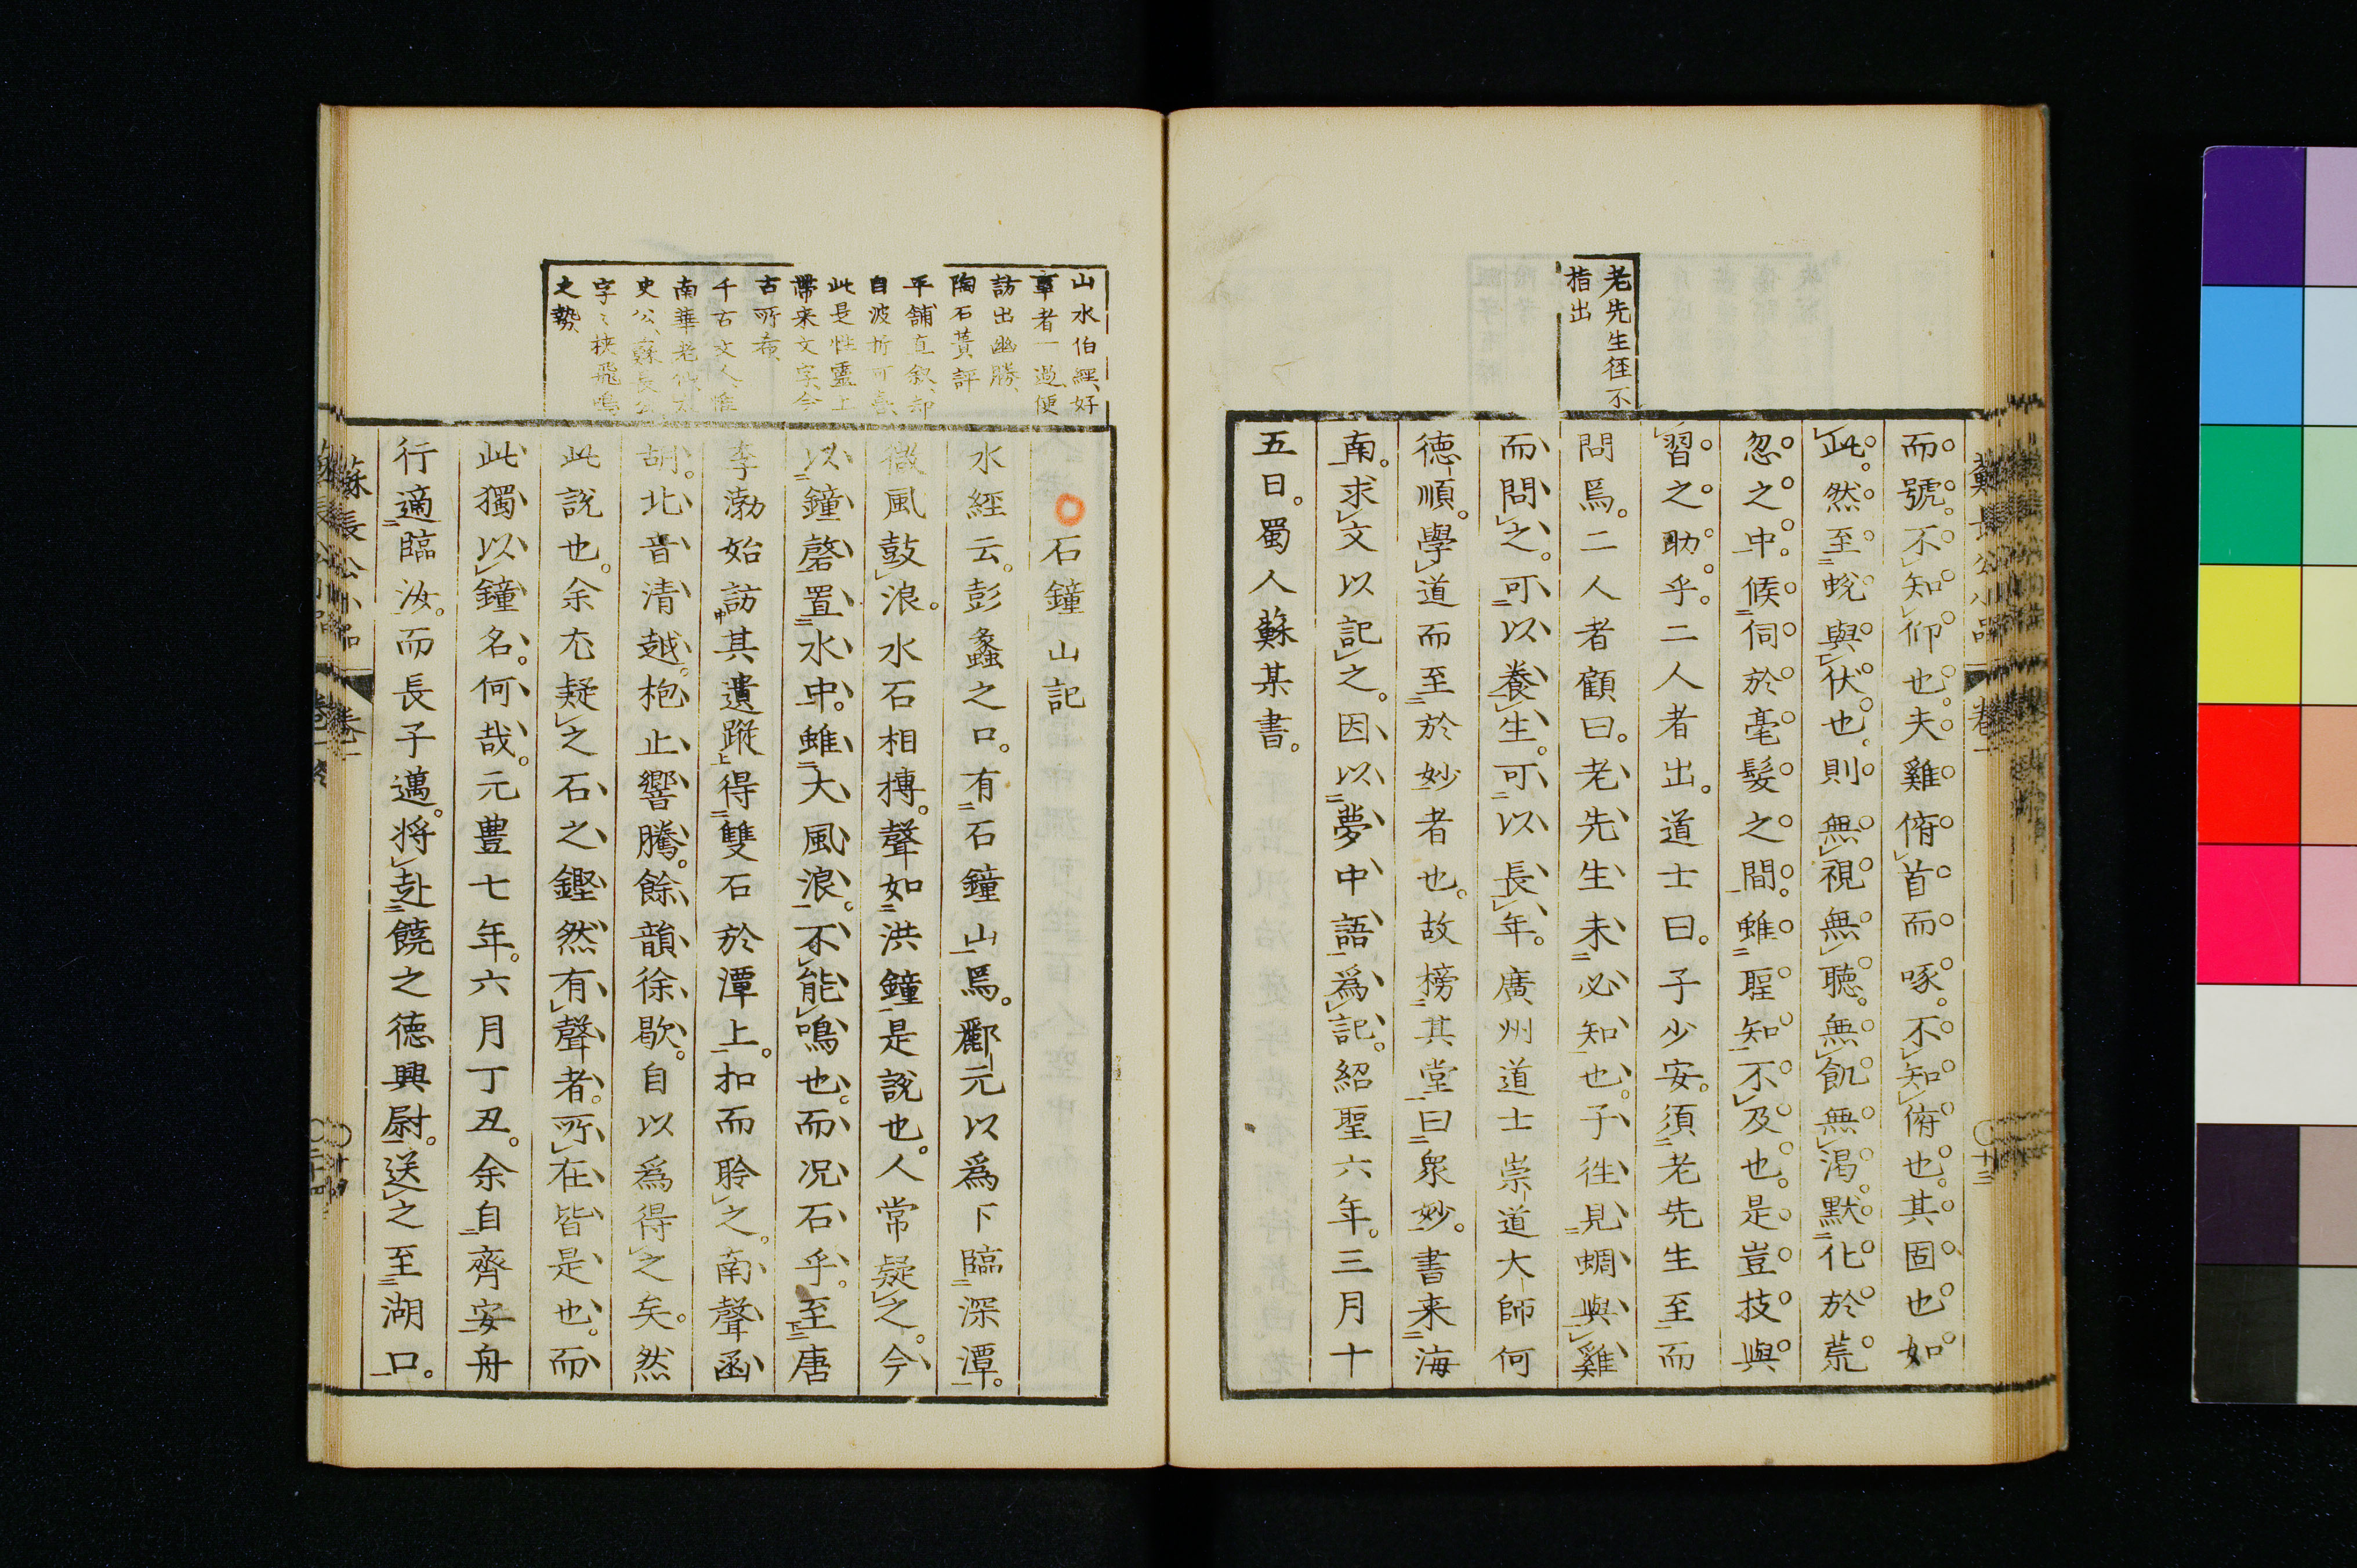 老先生徑不
指出
而號不知仰也夫雞俯首而啄不知俯也其固也如
此然至蛻與伏也則無視無聽無飢無渴默化於荒
忽之中候伺於毫髮之間雖聖知不及也是豈技與
習之助乎二人者出道士曰子少安須老先生至而
問焉二人者顧曰老先生未必知也子徃見蜩與雞
而問之可以養生可以長年廣州道士崇道大師何
德順學道而至於妙者也故榜其堂曰衆妙書来海
南求文以記之因以夢中語爲記紹聖六年三月十
五日蜀人蘇某書
山水伯經好
章者一過便
訪出幽勝
陶石簣評
平鋪直叙却
自波折可喜
此是性靈上
帶来文字今
古所希
千古文人惟
南華老仙太
史公蘇長公
字〻挾飛鳴
之勢
石鐘山記
水經云彭蠡之口有石鐘山焉酈元以爲下臨深潭
微風鼓浪水石相搏聲如洪鐘是說也人常疑之今
以鐘磬置水中雖大風浪不能鳴也而况石乎至唐
李渤始訪其遺蹤得雙石於潭上扣而聆之南聲函
胡北音清越枹止響騰餘韻徐歇自以爲得之矣然
此說也余尤疑之石之鏗然有聲者所在皆是也而
此獨以鐘名何哉元豊七年六月丁丑余自齊安舟
行適臨汝而長子邁将赴饒之德興尉送之至湖口
蘇長公小品
卷一